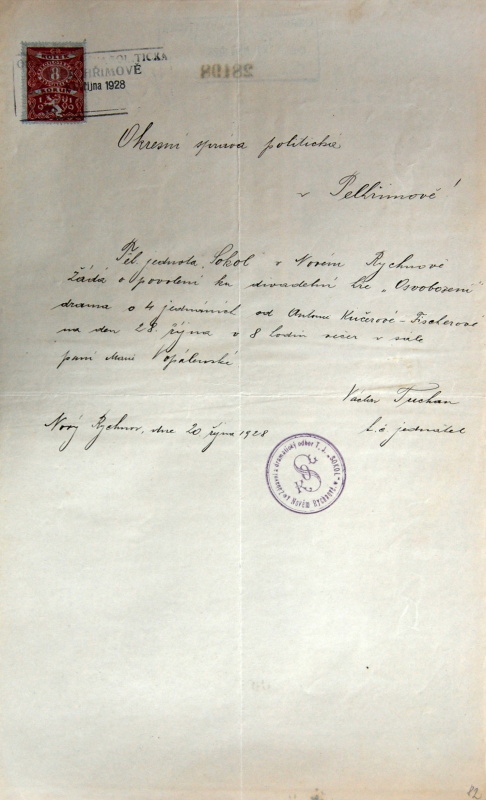 POLITICKÁ
října 1928
KOLEK
8
KORUN
28498
Okresní správa politická
v Pelhřimově!
Těl. jednota „Sokol v Novém Rychnově
žádá o povolení ku divadelní hře „Osvobození"
drama o 4 jednáních od Antonie Kučerové-Fischerové
na den 28. října v 8 hodin večer v sále
paní Marie Vopálenské
Václav Tuchan
t. č. jednatel
Nový Rychnov, dne 20 října 1928
dramatický odbor T. J. „SOKOL"
v Novém Rychnově
82